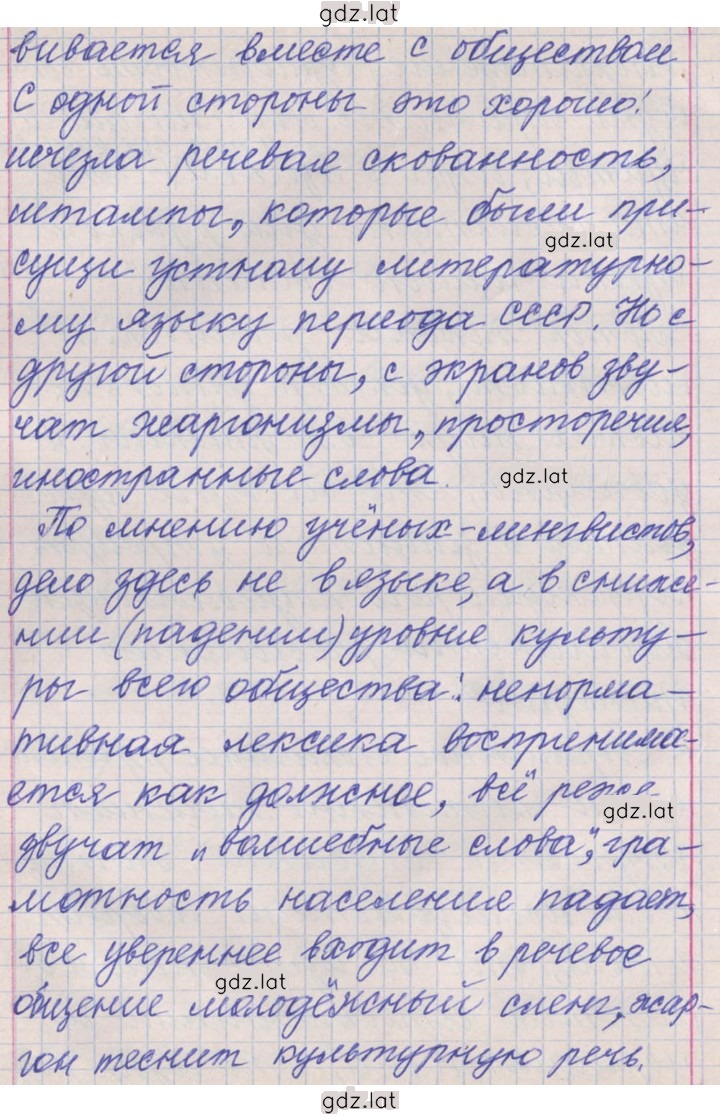 gdz.lat
вивается вместе с обществом
С одной стороны это хорошо:
исчезла речевая скованность,
штампы, которые были при-
gdz.lat
сущи устному литературно-
му языку периода СССР. Но с
другой стороны, с экранов зву-
чат жаргонизмы, просторечия,
иностранные слова.
gdz.lat
По мнению учёных-лингвистов,
дело здесь не в языке, а в сниже-
нии (падении) уровня культу-
ры всего общества: ненорма-
тивная лексика воспринима-
ется как должное, всё реже
gdz.lat
звучат „волшебные слова", гра-
мотность населения падает,
все увереннее входит в речевое
gdz.lat
общение молодёжный сленг, жар-
гон теснит культурную речь.
gdz.lat